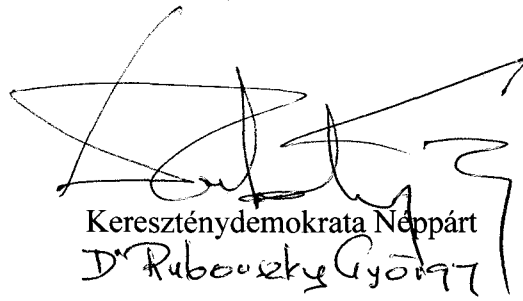 Kereszténydemokrata Néppárt
Dr Rubovszky György